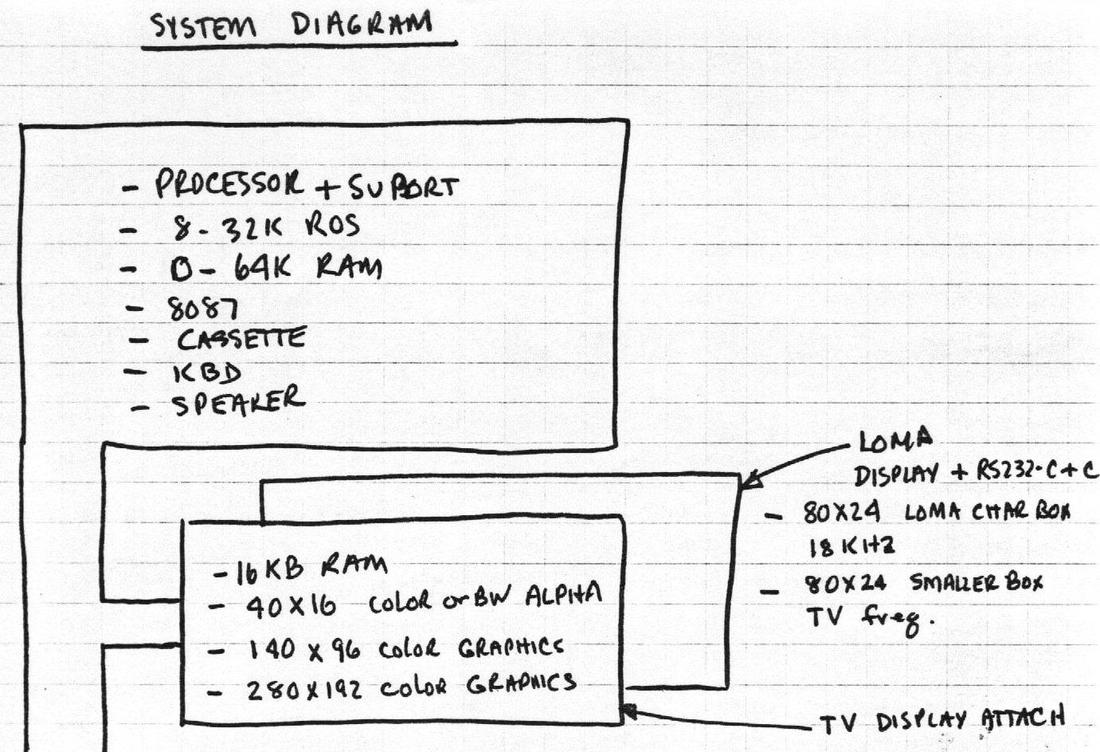 SYSTEM DIAGRAM
- PROCESSOR + SUPORT
- 8-32K ROS
- 0-64K RAM
- 8087
- CASSETTE
- KBD
- SPEAKER
LOMA
DISPLAY + RS232-C + C
- 80X24 LOMA CHAR BOX
18 KHZ
- 80X24 SMALLER BOX
TV freq.
- 16 KB RAM
- 40X16 COLOR or BW ALPHA
- 140 X 96 COLOR GRAPHICS
- 280X192 COLOR GRAPHICS
TV DISPLAY ATTACH